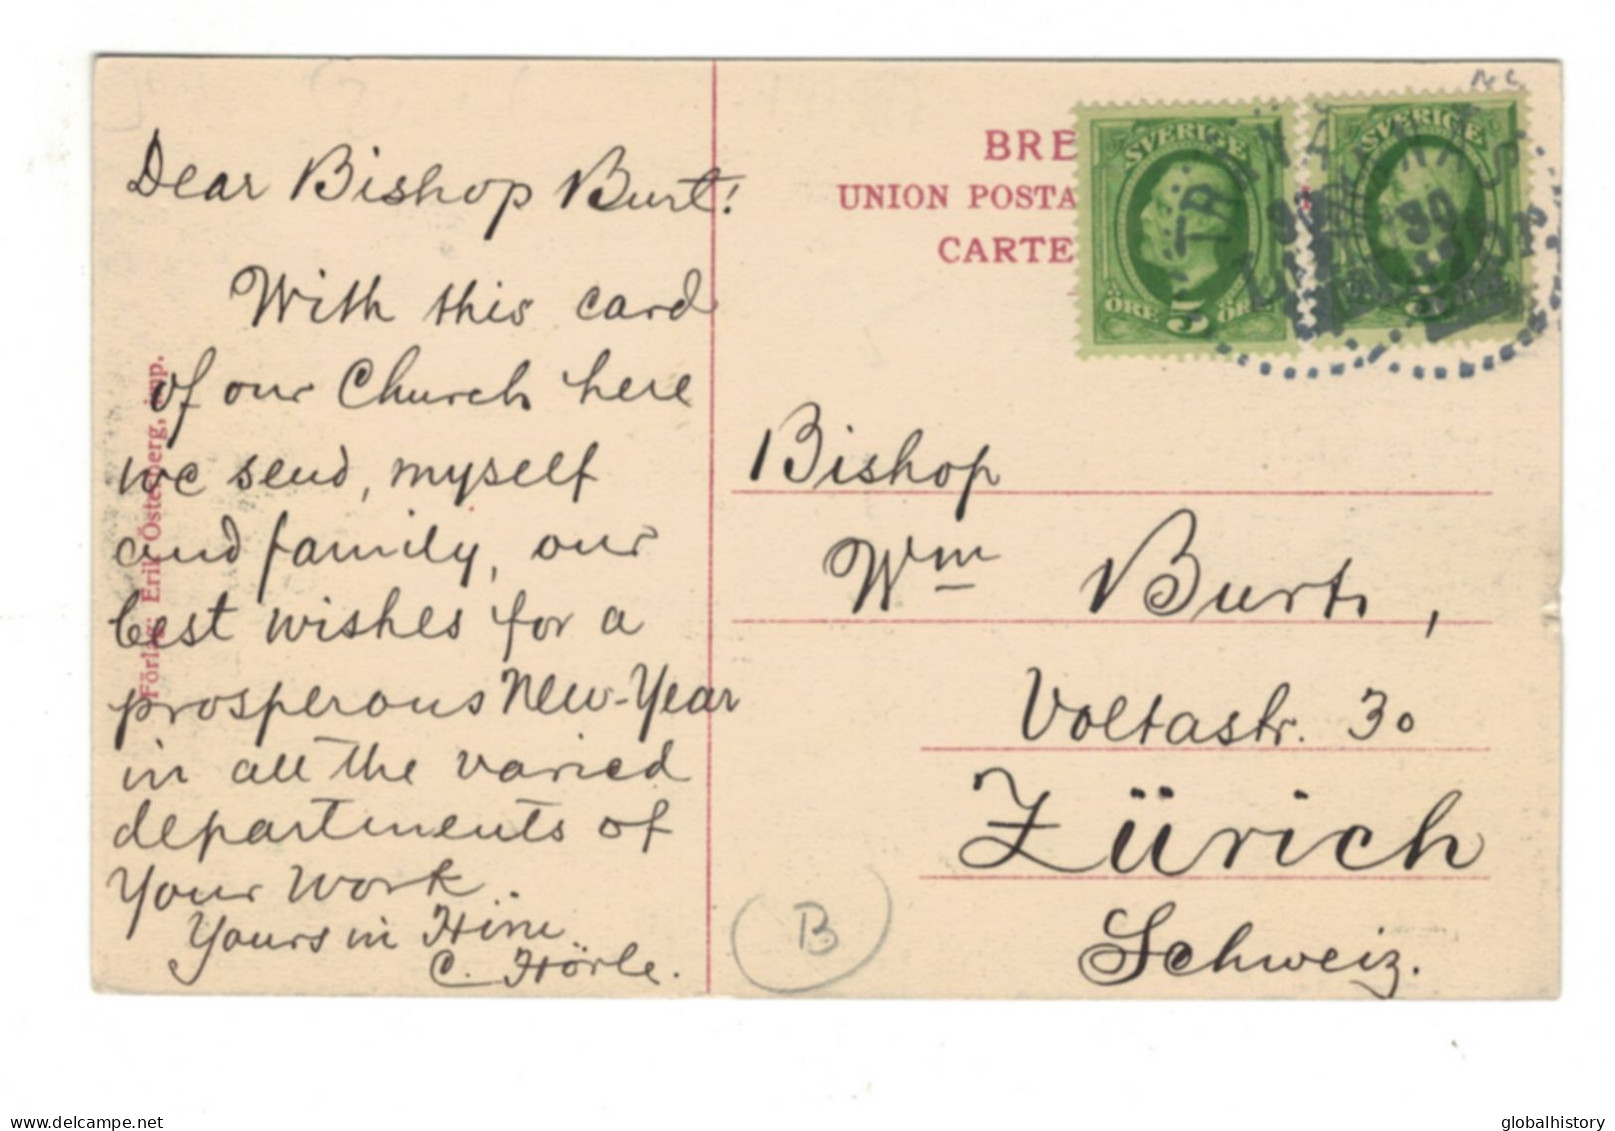 Dear Bishop Burt!
With this card
of our Church here
we send, myself
and family, our
best wishes for a
prosperous New-Year
in all the varied
departments of
Your work.
Yours in Him
C. Hörle.
Förlag: Erik Österberg, imp.
BRE
UNION POSTA
CARTE
SVERIGE
ÖRE 5 ÖRE
SVERIGE
5
TRANÅ
30
Bishop
Wm Burt,
Voltastr. 30
Zürich
Schweiz.
B
delcampe.net
globalhistory